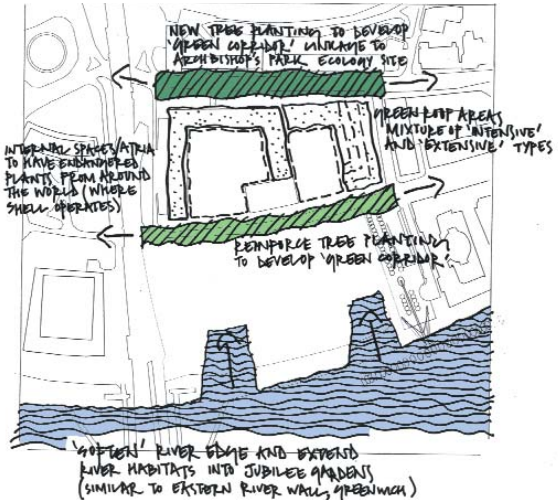 NEW TREE PLANTING TO DEVELOP
'GREEN CORRIDOR' LINKAGE TO
ARCHBISHOP'S PARK ECOLOGY SITE
GREEN ROOF AREAS
MIXTURE OF 'INTENSIVE'
AND 'EXTENSIVE' TYPES
INTERNAL SPACES/ATRIA
TO HAVE ENDANGERED
PLANTS FROM AROUND
THE WORLD (WHERE
SHELL OPERATES)
REINFORCE TREE PLANTING
TO DEVELOP 'GREEN CORRIDOR'
'SOFTEN' RIVER EDGE AND EXTEND
RIVER HABITATS INTO JUBILEE GARDENS
(SIMILAR TO EASTERN RIVER WALL, GREENWICH)